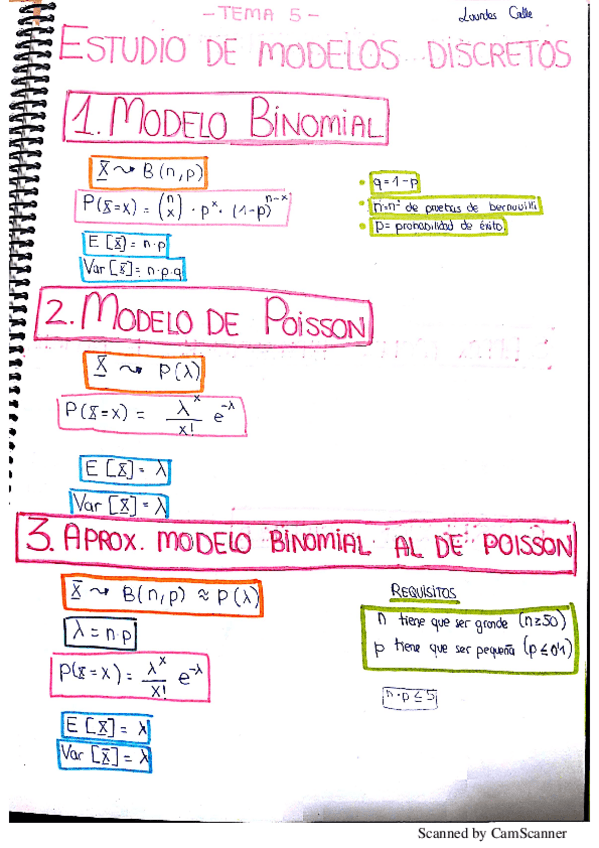 - TEMA 5 -
Lourdes Calle
ESTUDIO DE MODELOS DISCRETOS
1. MODELO BINOMIAL
X ⤳ B(n,p)
P(X=x) = (n x) · p^x · (1-p)^(n-x)
E[X] = n·p
Var[X] = n·p·q
• q=1-p
• n=nº de pruebas de bernoulli
• p= probabilidad de éxito
2. MODELO DE POISSON
X ⤳ P(λ)
P(X=x) = λ^x / x! e^-λ
E[X] = λ
Var[X] = λ
3. APROX. MODELO BINOMIAL AL DE POISSON
X ⤳ B(n,p) ≈ P(λ)
λ = n·p
P(X=x) = λ^x / x! e^-λ
E[X] = λ
Var[X] = λ
REQUISITOS
n tiene que ser grande (n≥50)
p tiene que ser pequeña (p≤0'1)
n·p≤5
Scanned by CamScanner